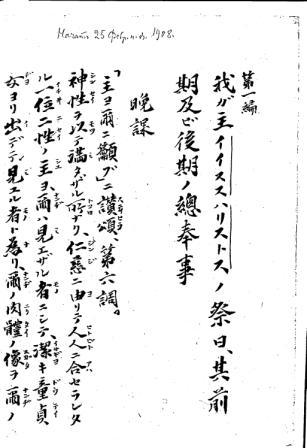 Начатъ 25 Февр. н.с. 1908.
第一編
我ガ主イイススハリストスノ祭日、其前
期及ビ後期ノ總奉事
晩課
「主ヨ爾ニ籲グ」ニ讚頌、第六調。
神性ヲ以テ滿タザル所ナク、仁慈ニ由リテ人人ニ合セラレタ
ル一位二性ノ主ヨ、爾ハ見エザル者ニシテ、潔キ童貞
女ヨリ出デテ、見エル者ト爲リ、爾ノ肉體ノ像ヲ爾ノ